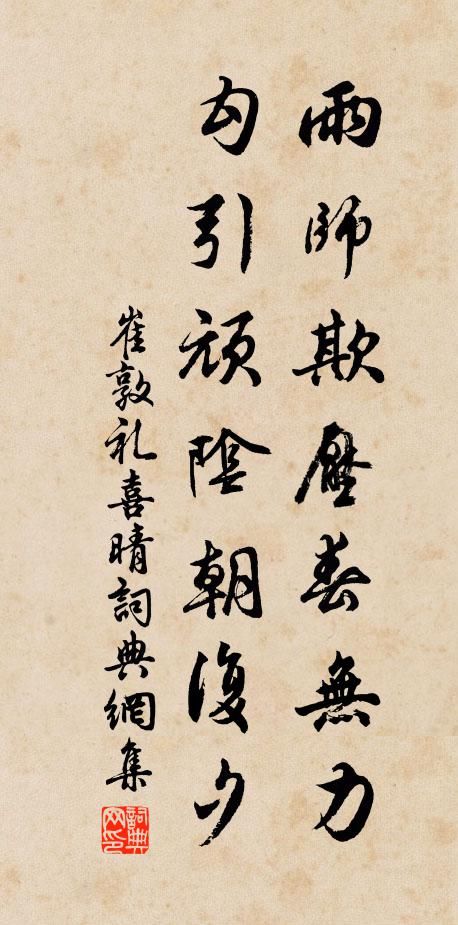 雨師欺壓春無力
勾引頑陰朝復夕
崔敦礼喜晴詞典網集
詞典网印